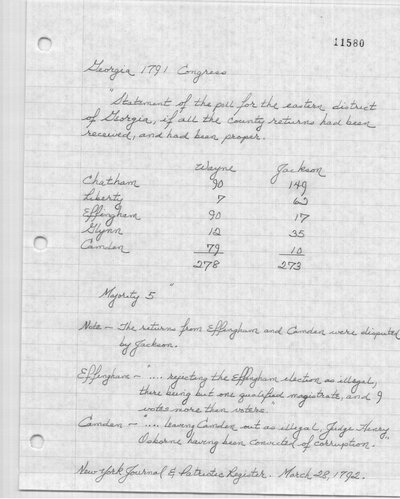 11580
Georgia 1791 Congress
"Statement of the poll for the eastern district
of Georgia, if all the county returns had been
received, and had been proper.
Wayne Jackson
Chatham 90 149
Liberty 7 62
Effingham 90 17
Glynn 12 35
Camden 79 10
278 273
Majority 5 "
Note - The returns from Effingham and Camden were disputed
by Jackson.
Effingham - ".... rejecting the Effingham election as illegal,
there being but one qualified magistrate, and 9
votes more than voters."
Camden - ".... leaving Camden out as illegal, Judge Henry
Osborne having been convicted of corruption."
New York Journal & Patriotic Register. March 28, 1792.